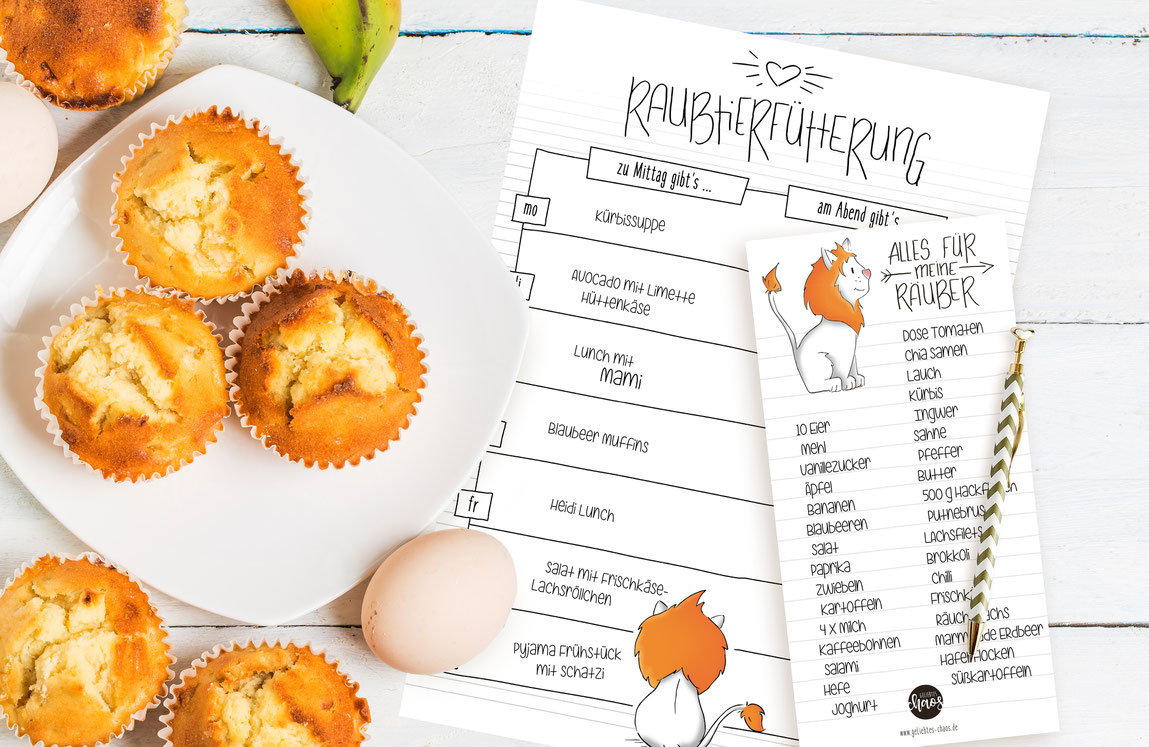 RAUBTIERFÜTTERUNG
zu Mittag gibt's ...
am Abend gibt's
mo
Kürbissuppe
Avocado mit Limette
Hüttenkäse
Lunch mit
Mami
Blaubeer Muffins
fr
Heidi Lunch
Salat mit Frischkäse-
Lachsröllchen
Pyjama Frühstück
mit Schatzi
ALLES FÜR
MEINE
RÄUBER
10 Eier
Mehl
Vanillezucker
Äpfel
Bananen
Blaubeeren
Salat
Paprika
Zwiebeln
Kartoffeln
4 x Milch
Kaffeebohnen
Salami
Hefe
Joghurt
Dose Tomaten
Chia Samen
Lauch
Kürbis
Ingwer
Sahne
Pfeffer
Butter
500 g
Lachsfilets
Brokkoli
Chilli
Erdbeer
Süßkartoffeln
GELIEBTES
chaos
www.geliebtes-chaos.de